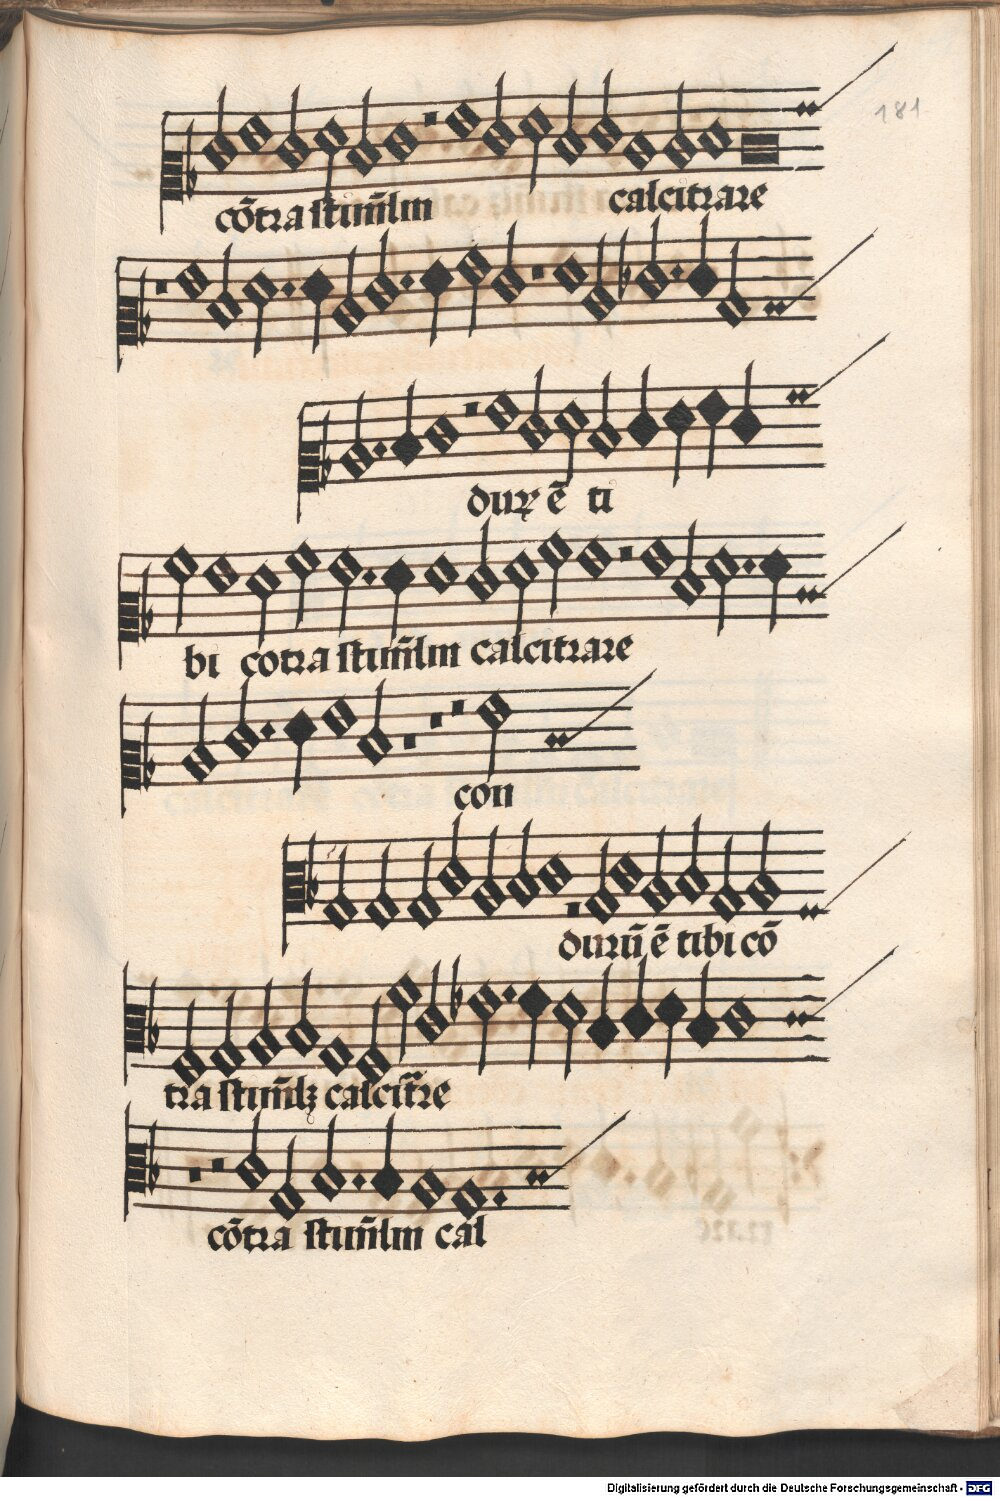 181
cōtra stim̄lm calcitrare
duꝝ ē ti
bi cotra stim̄lm calcitrare
con
durū ē tibi cō
tra stim̄lꝫ calcit̄re
cōtra stim̄lm cal
Digitalisierung gefördert durch die Deutsche Forschungsgemeinschaft - DFG